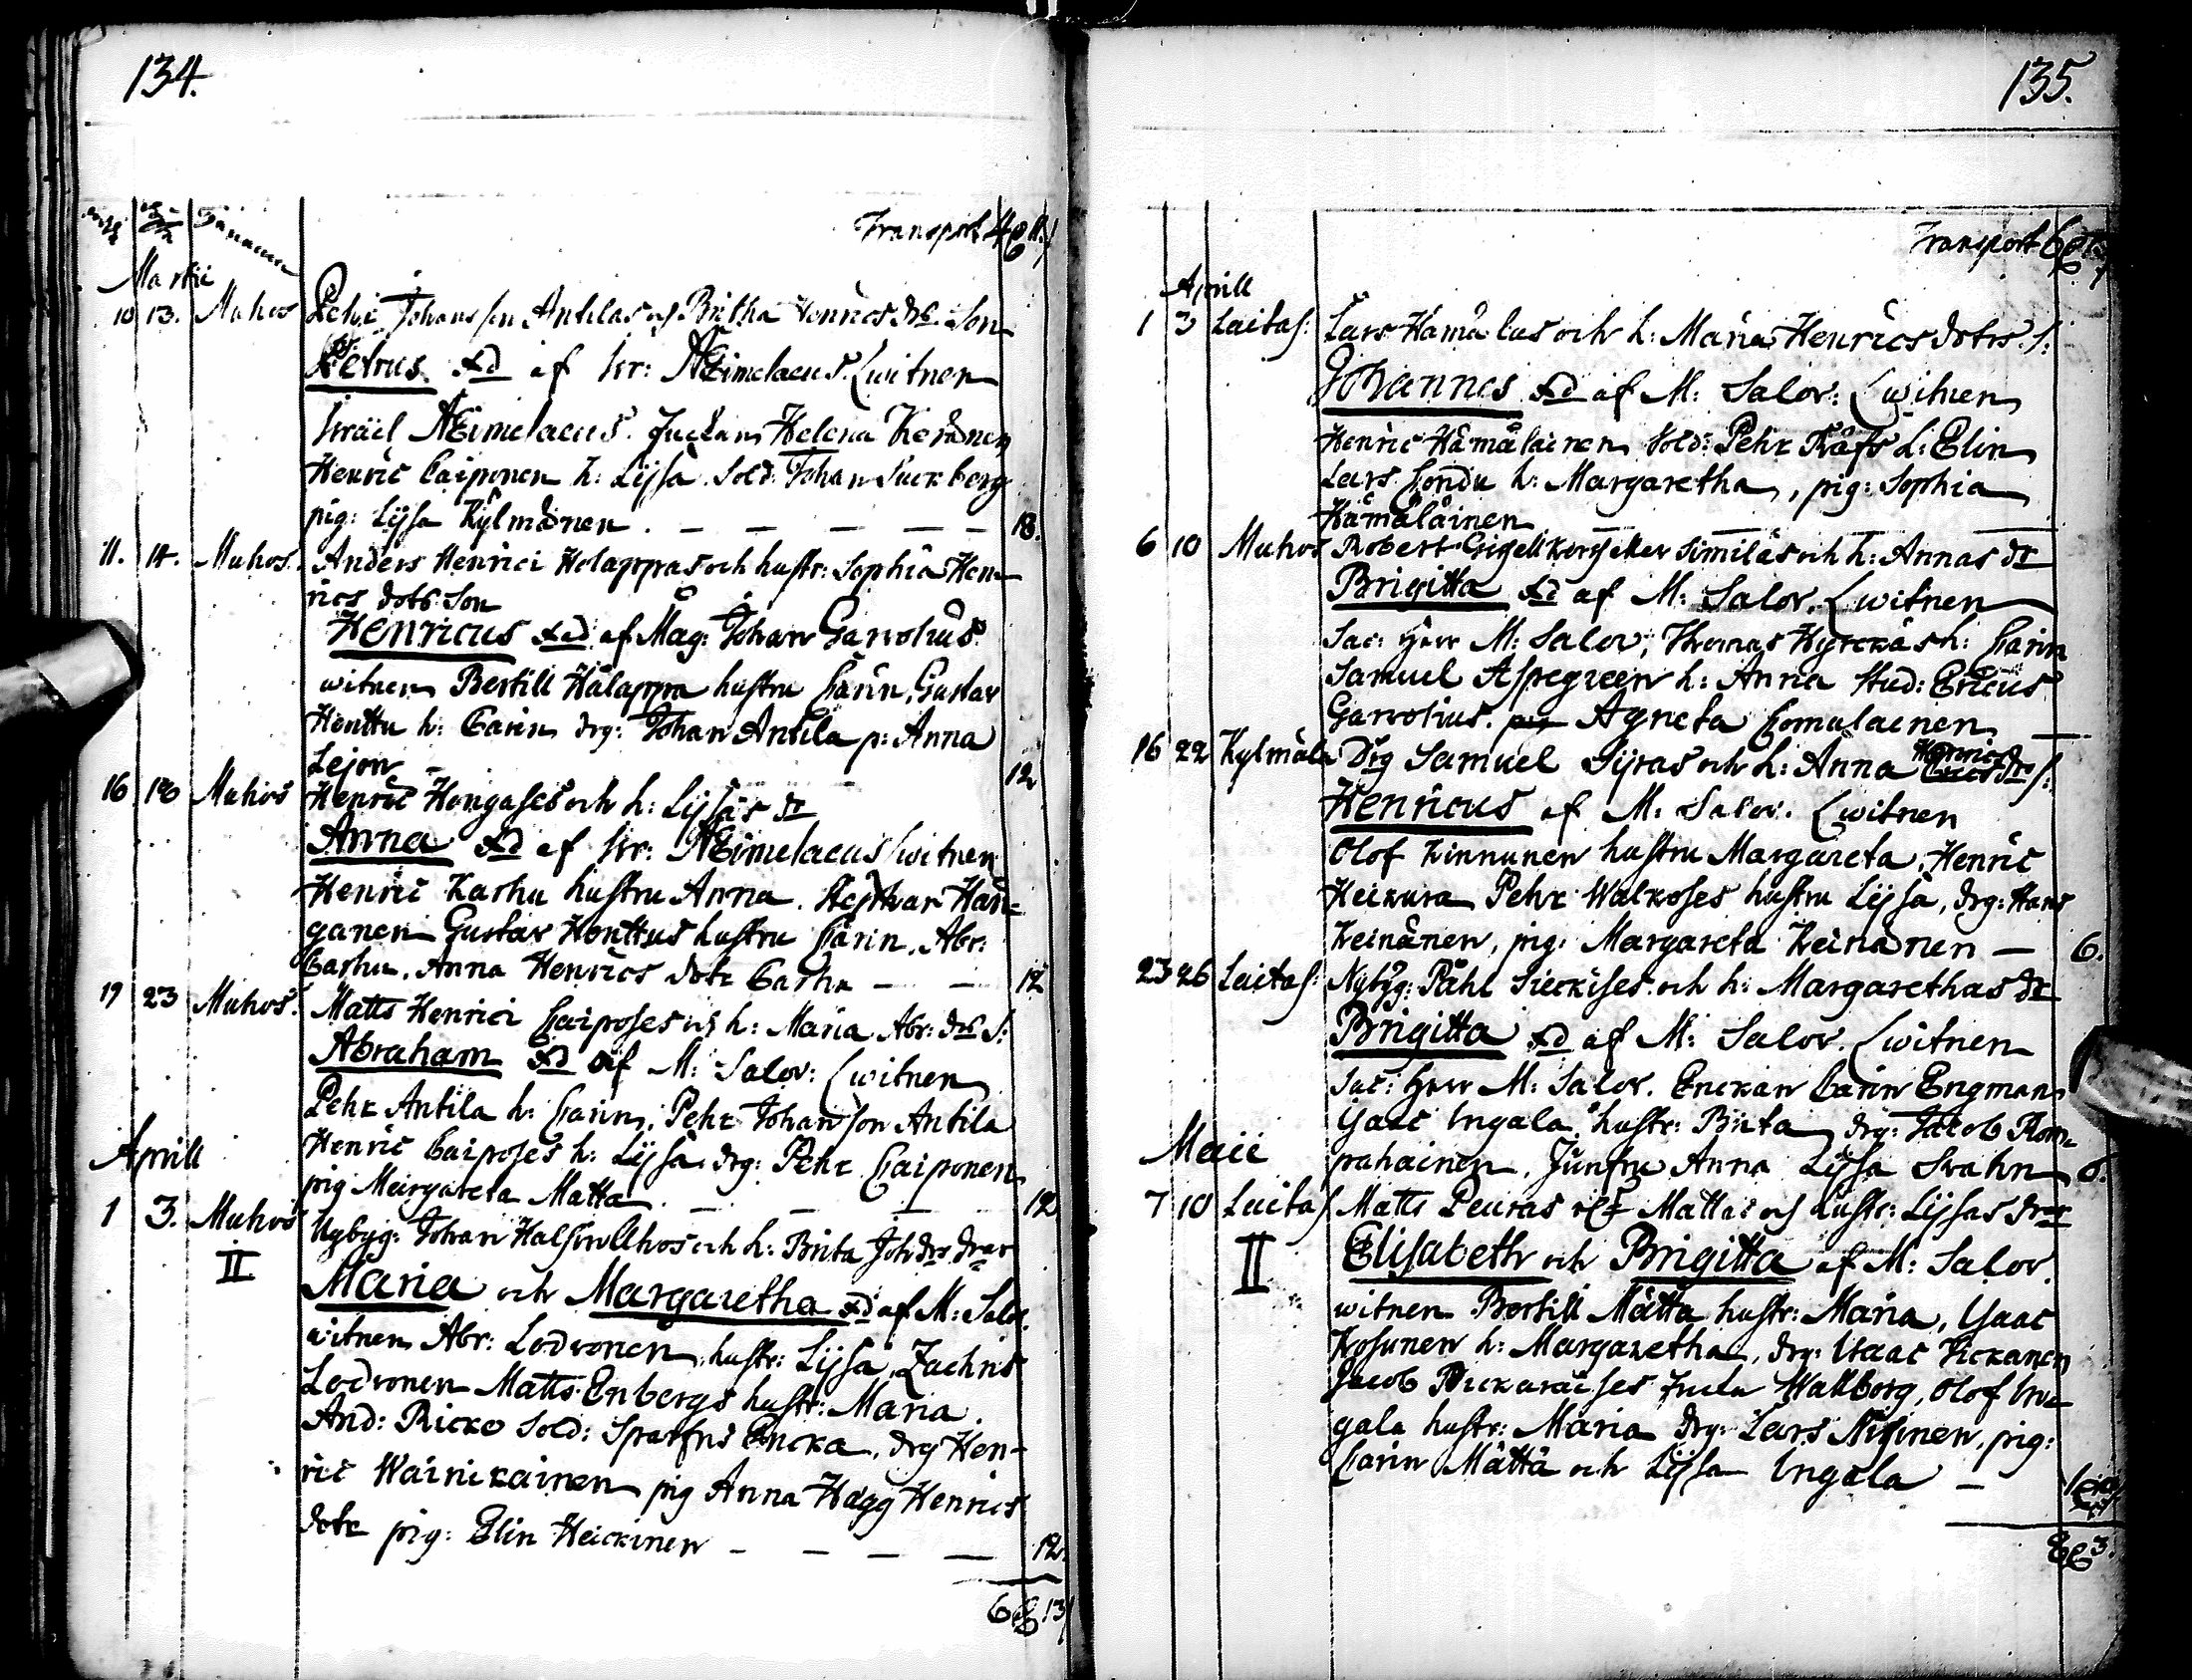 134.
Transport 4
Martii
10 13. Muhos Pehr Johansson Antilas och Britha Henrics drs Son
Petrus xd af hr: Æimelaeus. witnen
Israel Æimelaeus. Juckan Helena Keränen
Henric Caiponen h: Lijsa. Sold: Johan Suckberg
pig: Lijsa Kylmänen. — — — — — 18.
11. 14. Muhos. Anders Henrici Holappas och hustr: Sophia Hen-
rics dots Son
Henricus xd af Mag: Johan Garvolius
witnen Bertill Hålappa hustru Carin, Gustav
Honttu h: Carin drg: Johan Antila p: Anna
Lejon — 12
16 18 Muhos Henric Hongases och h: Lijsas dr
Anna xd af hr: Æimelaeus witnen
Henric Karhu hustru Anna. Stephan Han-
ganen Gustav Honttus hustru Carin. Abr:
Carhu. Anna Henrics dotr Carhu — — 12
19 23 Muhos. Matts Henrici Caiposes och h: Maria Abr: drs S:
Abraham xd af M: Salov: witnen
Pehr Antila h: Carin, Pehr Johansson Antila
Henric Caiposes h: Lijsa drg: Pehr Caiponen
pig Margareta Matta — — — 12
Aprill
1 3. Muhos Nybyg: Johan Halsinllhos och h: Brita Joh drs drar
II Maria och Margaretha xd af M: Salov.
witnen Abr: Lodvonen hustr: Lijsa, Zachris
Lodvonen Matts Enbergs hustr: Maria.
And: Ricko Sold: Sparfns Encka, drg Hen-
ric Wäinikainen pig Anna Hägg Henrics
dotr pig: Elin Heickinen — — — — 12.
6 13
135.
Transport 6
Aprill
1 3 Laitas: Lars Hämälas och h: Maria Henrics dotrs. S:
Johannes xd af M: Salov: witnen
Henric Hämäläinen Sold: Pehr Räfs h: Elin
Lars Hondu h: Margaretha, pig: Sophia
Hämäläinen —
6 10 Muhos Robert Gisell Similäs och h: Annas dr
Brigitta xd af M: Salov. witnen
Sac: Herr M: Salov; Thomas Hyrckäs h: Carin
Samuel Aspegreen h: Anna Stud: Ericus
Garvolius. pig Agneta Comulainen —
16 22 Kylmälä Drg Samuel Sijras och h: Anna Henrics drs S:
Henricus af M: Salov. witnen
Olof Kinnunen hustru Margareta, Henric
Heikura Pehr Walkoses hustru Lijsa, drg: Hans
Keinänen, pig: Margareta Keinänen — 6.
23 26 Laitas: Nybyg: Påhl Sieckises och h: Margarethas dr
Brigitta xd af M: Salov. witnen
Sac: Herr M: Salov. Enckan Carin Engman
Isaac Ingala hustr: Brita drg: Jacob Rom-
pahainen. Junfru Anna Lijsa Svahn 6.
Maii
7 10 Laitas Matts Peuras Mattas och hustr: Lijsas drar
II Elisabeth och Brigitta af M: Salov.
witnen Bertill Mätta hustr: Maria, Isaac
Kosunen h: Margaretha, drg: Isaac Kickanen
Jacob Pickaraises hustru Wallborg, Olof Un-
gala hustr: Maria drg: Lars Nissinen, pig:
Carin Mättä och Lijsa Ingala —
8 3.